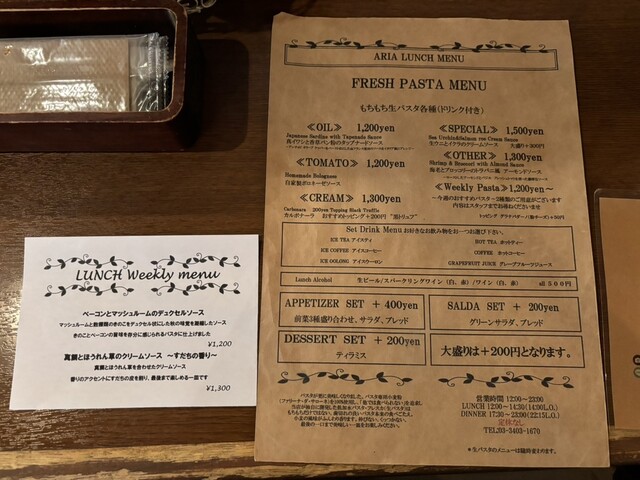 ARIA LUNCH MENU
FRESH PASTA MENU
もちもち生パスタ各種(ドリンク付き)
≪OIL≫ 1,200yen
Japanese Sardine with Tapenade Sauce
真イワシと香草パン粉のタップナードソース
≪TOMATO≫ 1,200yen
Homemade Bolognese
自家製ボロネーゼソース
≪CREAM≫ 1,300yen
Carbonara 200yen Topping Black Truffle
カルボナーラ おすすめトッピング+200円 "黒トリュフ"
≪SPECIAL≫ 1,500yen
Sea Urchin&Salmon roe Cream Sauce
生ウニとイクラのクリームソース 大盛り+300円
≪OTHER≫ 1,300yen
Shrimp & Broccori with Almond Sauce
海老とブロッコリーのトラパニ風 アーモンドソース
≪Weekly Pasta≫1,200yen~
~今週のおすすめパスタ~2種類のご用意がございます
内容はスタッフまでお尋ねくださいませ
Set Drink Menu お好きなお飲み物をお一つお選び下さい。
ICE TEA アイスティ
HOT TEA ホットティー
ICE COFFEE アイスコーヒー
COFFEE ホットコーヒー
ICE OOLONG アイスウーロン
GRAPEFRUIT JUICE グレープフルーツジュース
Lunch Alcohol 生ビール/スパークリングワイン(白、赤)/ワイン(白、赤) all 500円
APPETIZER SET + 400yen
前菜3種盛り合わせ、サラダ、ブレッド
SALDA SET + 200yen
グリーンサラダ、ブレッド
DESSERT SET +200yen
ティラミス
大盛りは+200円となります。
営業時間 12:00~23:00
LUNCH 12:00~14:30(14:00L.O.)
DINNER 17:30~23:00(22:15L.O.)
定休なし
TEL:03-3403-1670
*生パスタのメニューは随時変わります。
LUNCH Weekly menu
ベーコンとマッシュルームのデュクセルソース
マッシュルームと数種類のきのこをデュクセル状にした秋の味覚を凝縮したソース
きのことベーコンの旨味を存分に感じられるパスタに仕上げました
¥1,200
真鯛とほうれん草のクリームソース ~すだちの香り~
真鯛とほうれん草を合わせたクリームソース
香りのアクセントにすだちの皮を削り、最後まで楽しめる一皿です
¥1,300